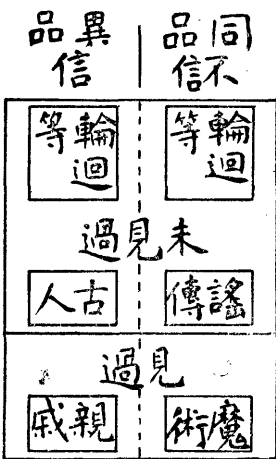 同品
不信
異品
信
輪迴等
輪迴等
未見過
謠傳
古人
見過
魔術
親戚